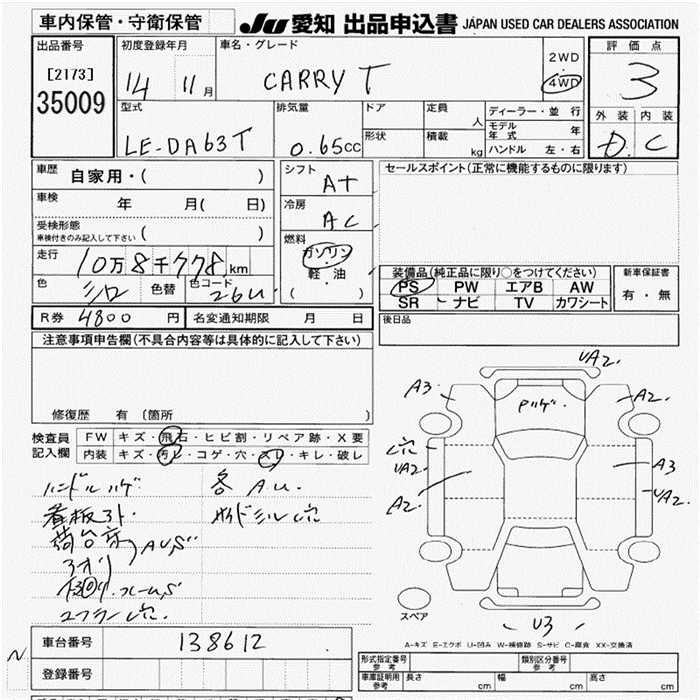 車内保管・守衛保管
JU 愛知 出品申込書 JAPAN USED CAR DEALERS ASSOCIATION
出品番号 初度登録年月 車名・グレード 2WD・4WD 評価点
[2173] 35009 14 11月 CARRY T 3
型式 排気量 ドア 定員 人 ディーラー・並行 外装 内装
LE-DA63T 0.65cc 形状 積載 kg モデル年式 年 ハンドル 左・右 D. C
車歴 自家用・( ) シフト AT セールスポイント(正常に機能するものに限ります)
車検 年 月( 日) 冷房 AC
受検形態 車検付きのみ記入して下さい ( ) 燃料 ガソリン・軽油 ( )
走行 10万8千778km
色 シロ 色替 色コード 26U
装備品(純正品に限り○をつけてください) 新車保証書
PS PW エアB AW 有・無
SR ナビ TV カワシート
R券 4800円 名変通知期限 月 日 後日品
注意事項申告欄(不具合内容等は具体的に記入して下さい)
修復歴 有 〔箇所 〕
検査員記入欄 FW キズ・飛石・ヒビ割・リペア跡・X要
内装 キズ・汚レ・コゲ・穴・スレ・キレ・破レ
ハンドルハゲ 各AU.
看板3ト.
UA2.
A3
Pハゲ.
A2.
UA2.
A3
A2.
UA2.
U3
スペア
A-キズ E-エクボ U-凹み W-補修跡 S-サビ C-腐食 XX-交換済
車台番号 138612
登録番号
形式指定番号 参考 類別区分番号 参考
車庫証明用 参考 長さ cm 幅 cm 高さ cm